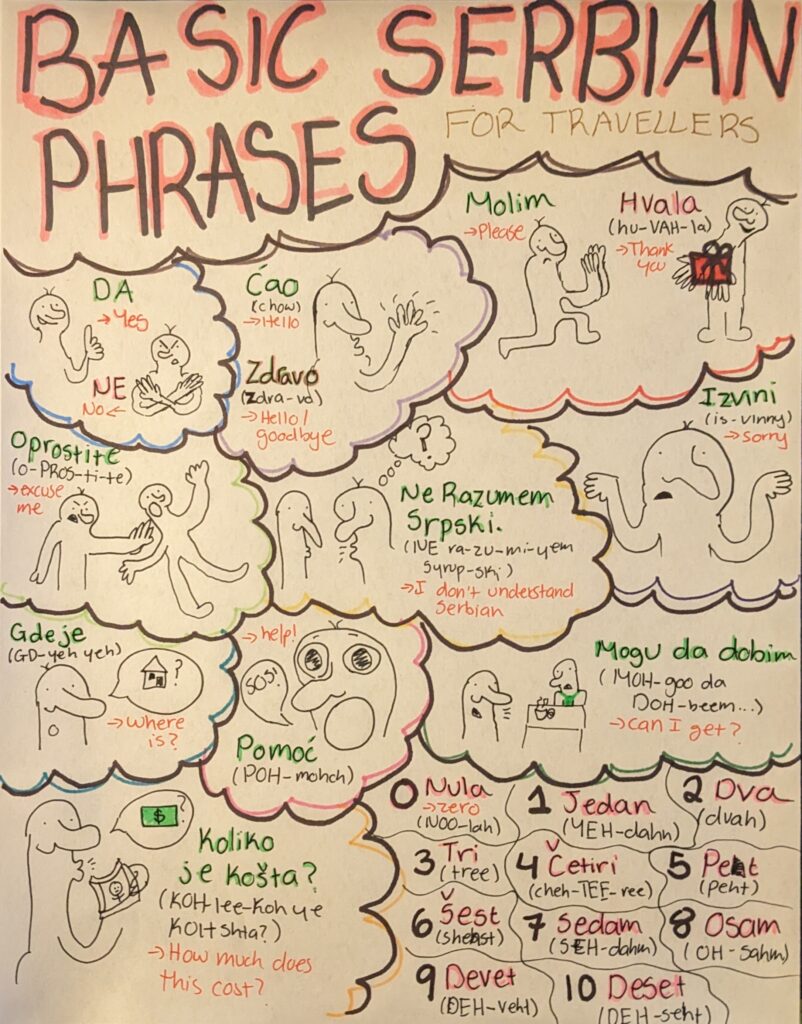 BASIC SERBIAN
PHRASES
FOR TRAVELLERS
Molim
→Please
Hvala
(hu-VAH-la)
→Thank
you
DA
→Yes
NE
No←
Ćao
(chow)
→Hello
Zdravo
(zdra-vo)
→Hello/
goodbye
Izvini
(is-vinny)
→sorry
Oprostite
(o-PROS-ti-te)
→excuse
me
?
Ne Razumem
Srpski.
(NE ra-zu-mi-yem
syrup-ski)
→I don't understand
Serbian
Gdeje
(GD-yeh yeh)
?
→where
is?
→help!
SOS!
Pomoć
(POH-mohch)
Mogu da dobim
(MOH-goo da
DOH-beem...)
→can I get?
$ ?
Koliko
je košta?
(KOH-lee-Koh ye
KOH shta?)
→How much does
this cost?
0 Nula
→zero
(NOO-lah)
1 Jedan
(YEH-dahn)
2 Dva
(dvah)
3 Tri
(tree)
4 Četiri
(cheh-TEE-ree)
5 Pet
(peht)
6 Šest
(shehst)
7 Sedam
(SEH-dahm)
8 Osam
(OH-sahm)
9 Devet
(DEH-veht)
10 Deset
(DEH-seht)